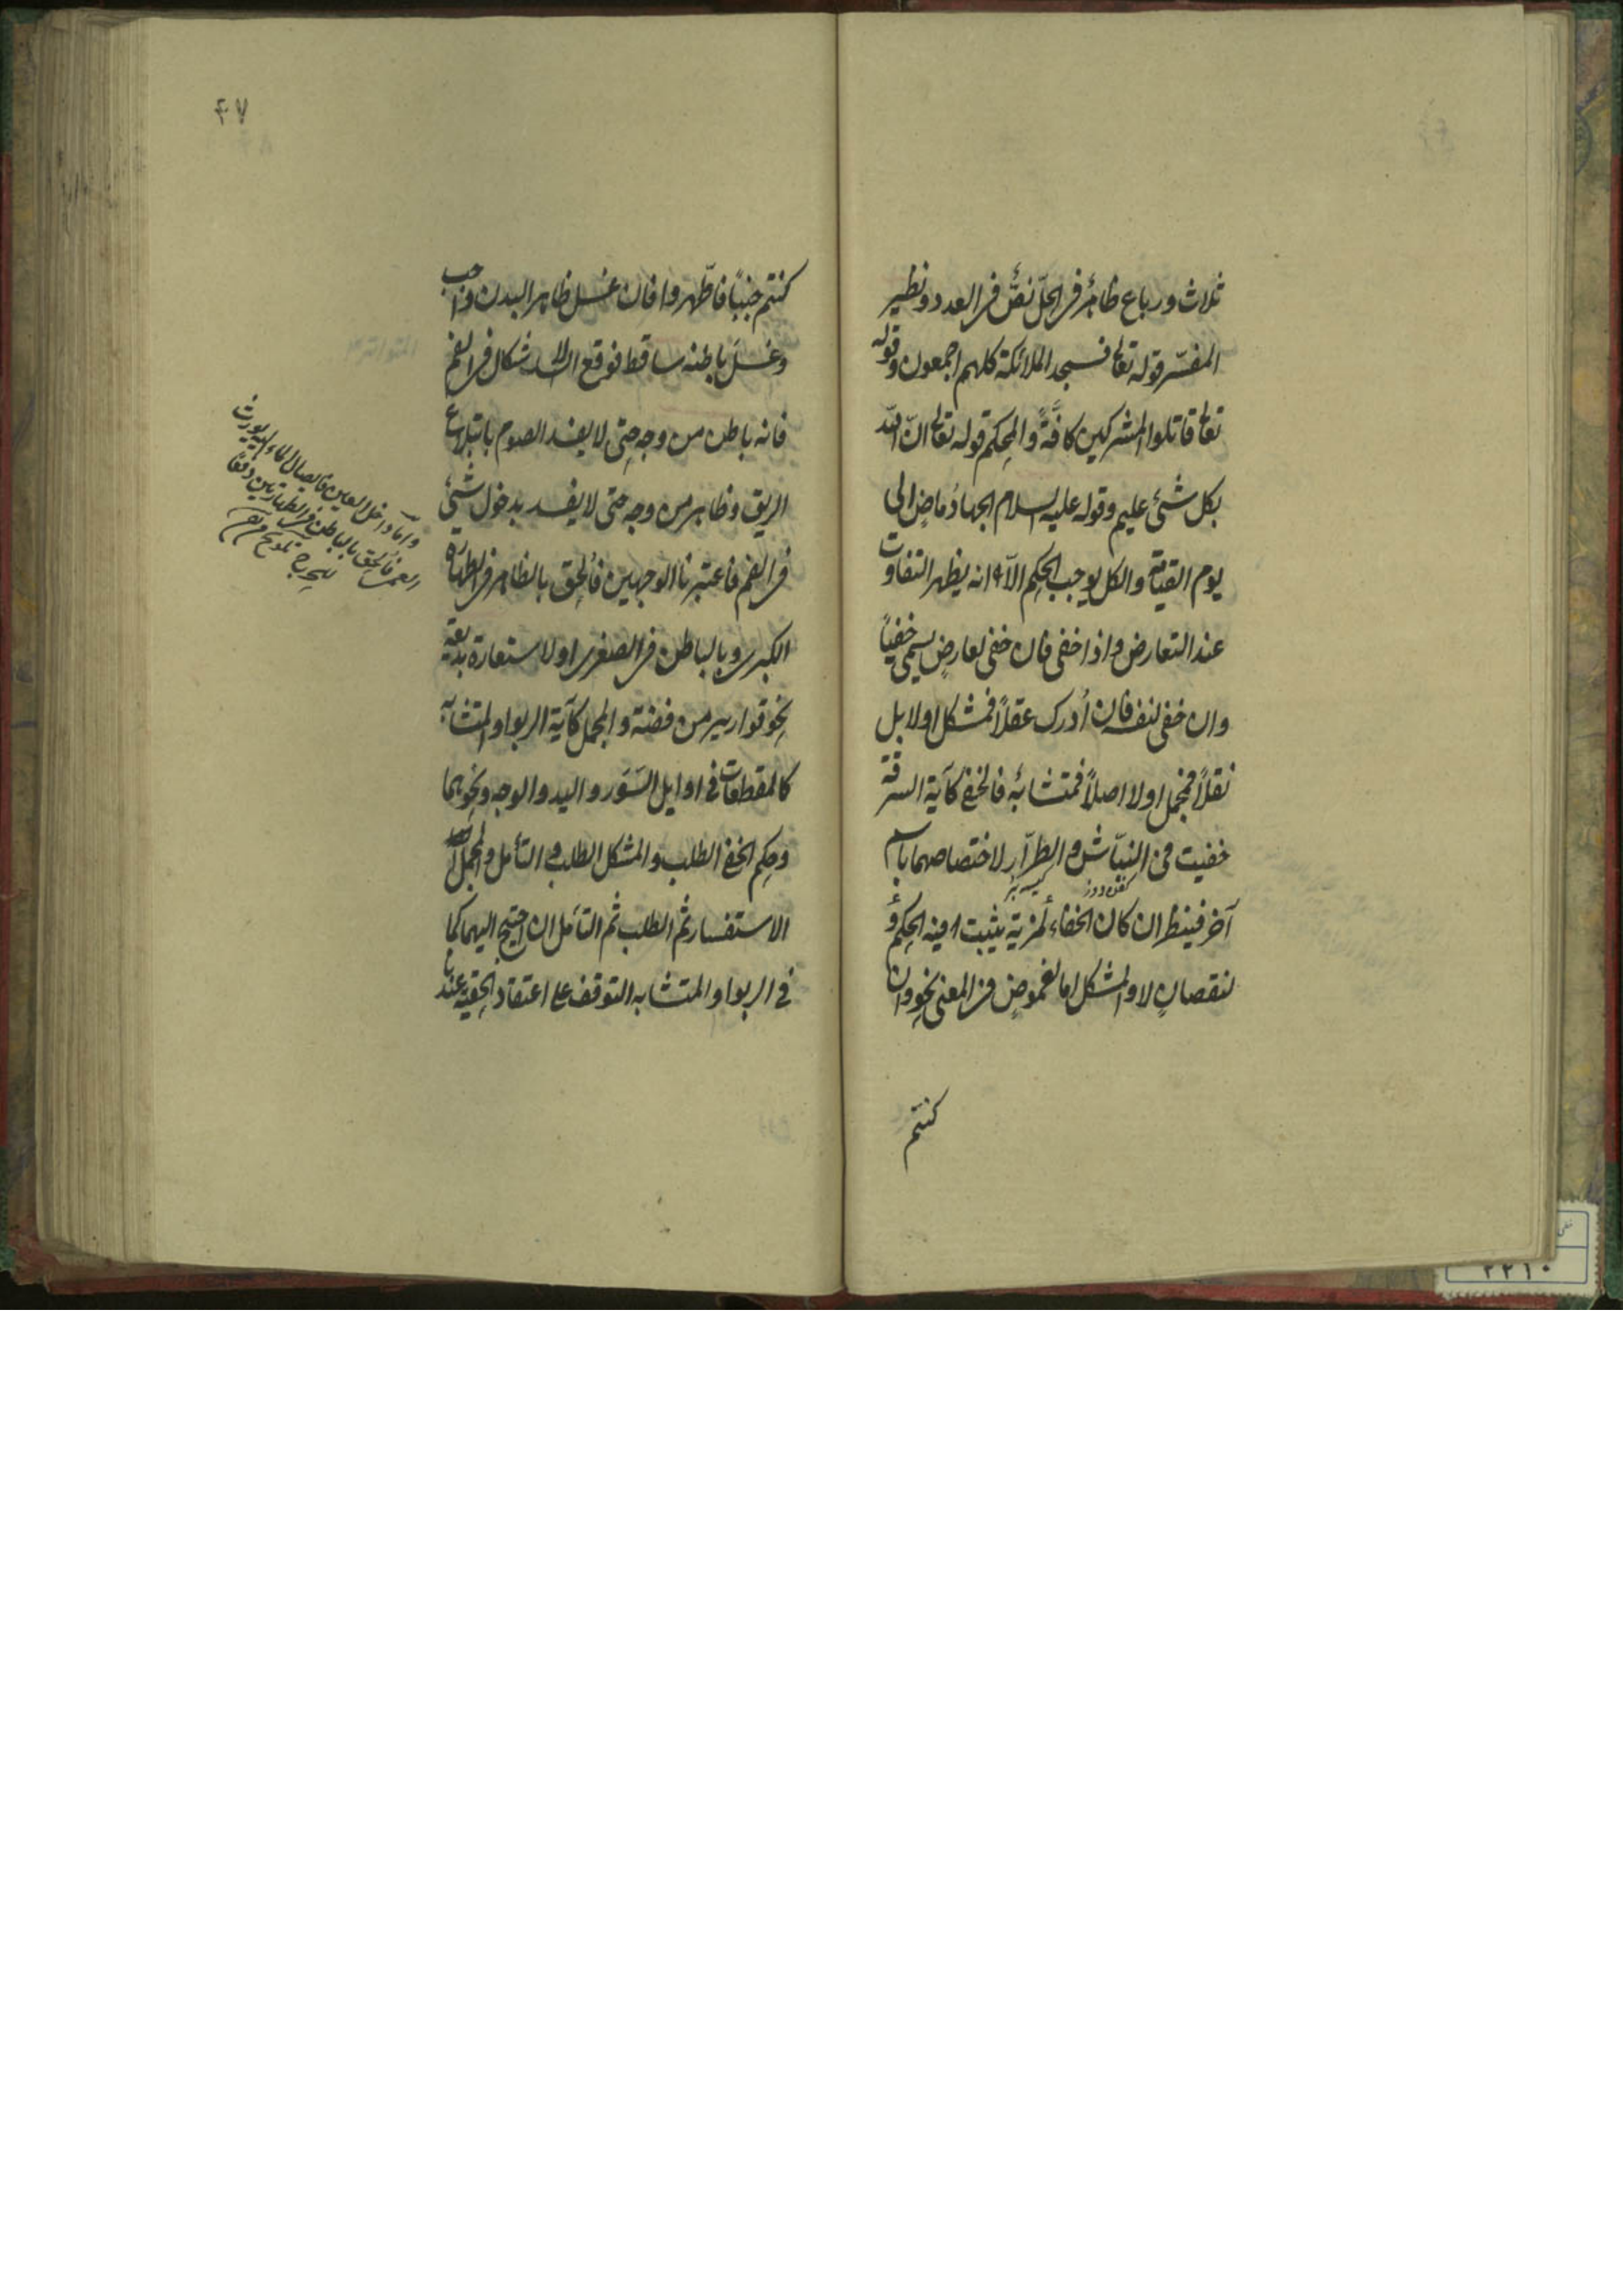 ثلاث ورباع ظاهرٌ في الحلّ نصٌّ في العدد ونظير
المفسّر قوله تعالى فسجد الملائكة كلهم اجمعون وقوله
تعالى قاتلوا المشركين كافّةً والمحكم قوله تعالى انّ الله
بكل شئ عليم وقوله عليه السلام الجهادُ ماضٍ الى
يوم القيامة والكل يوجب الحكم الّا انه يظهر التفاوت
عند التعارض واذا خفى فان خفى لعارضٍ يسمى خفيّاً
وان خفى لنفسه فان أُدرك عقلاً فمشكل اولا بل
نقلاً فمجمل اولا اصلاً فمتشابهٌ فالخفى كآية السرقة
خفيت فى النبّاش والطرّار لاختصاصهما باسم
كفن دزد
كيسه بُر
آخر فينظر ان كان الخفاء لمزية يثبت فيه الحكم و
لنقصانٍ لا والمشكل اما لغموضٍ في المعنى نحو وان
كنتم
٤٧
كنتم جنباً فاطّهروا فان غسل ظاهر البدن واجب
وغسل باطنه ساقط فوقع الاشكال في الفم
فانه باطن من وجه حتى لا يفسد الصوم بابتلاع
الريق وظاهر من وجه حتى لا يفسد بدخول شئ
في الفم فاعتبرنا الوجهين فأُلحق بالظاهر في الطهارة
الكبرى وبالباطن في الصغرى او لاستعارة بديعة
نحو قوارير من فضة والمجمل كآية الربوا والمتشابه
كالمقطعات فى اوايل السُوَر واليد والوجه ونحوهما
وحكم الخفى الطلب والمشكل الطلب والتأمل والمجمل
الاستفسار ثم الطلب ثم التأمل ان احتيج اليهما كما
فى الربوا والمتشابه التوقف على اعتقاد الحقية عندنا
وامّا داخل العين فايصال الماء اليه يورث
العمى فألحق بالباطن في الطهارتين دفعًا
للحرج